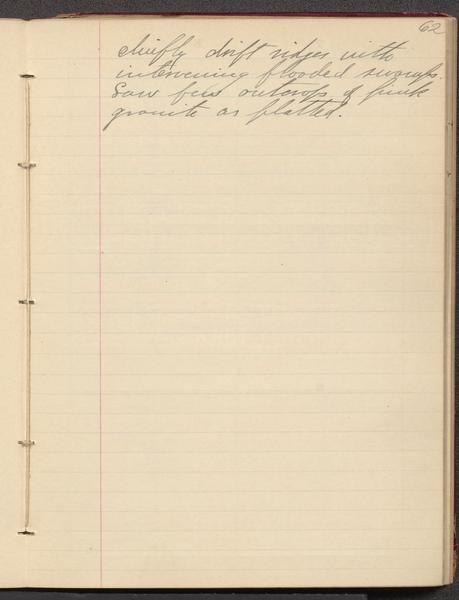 62
chiefly drift ridges with
intervening flooded swamps.
Saw few outcrops of pink
granite as platted.